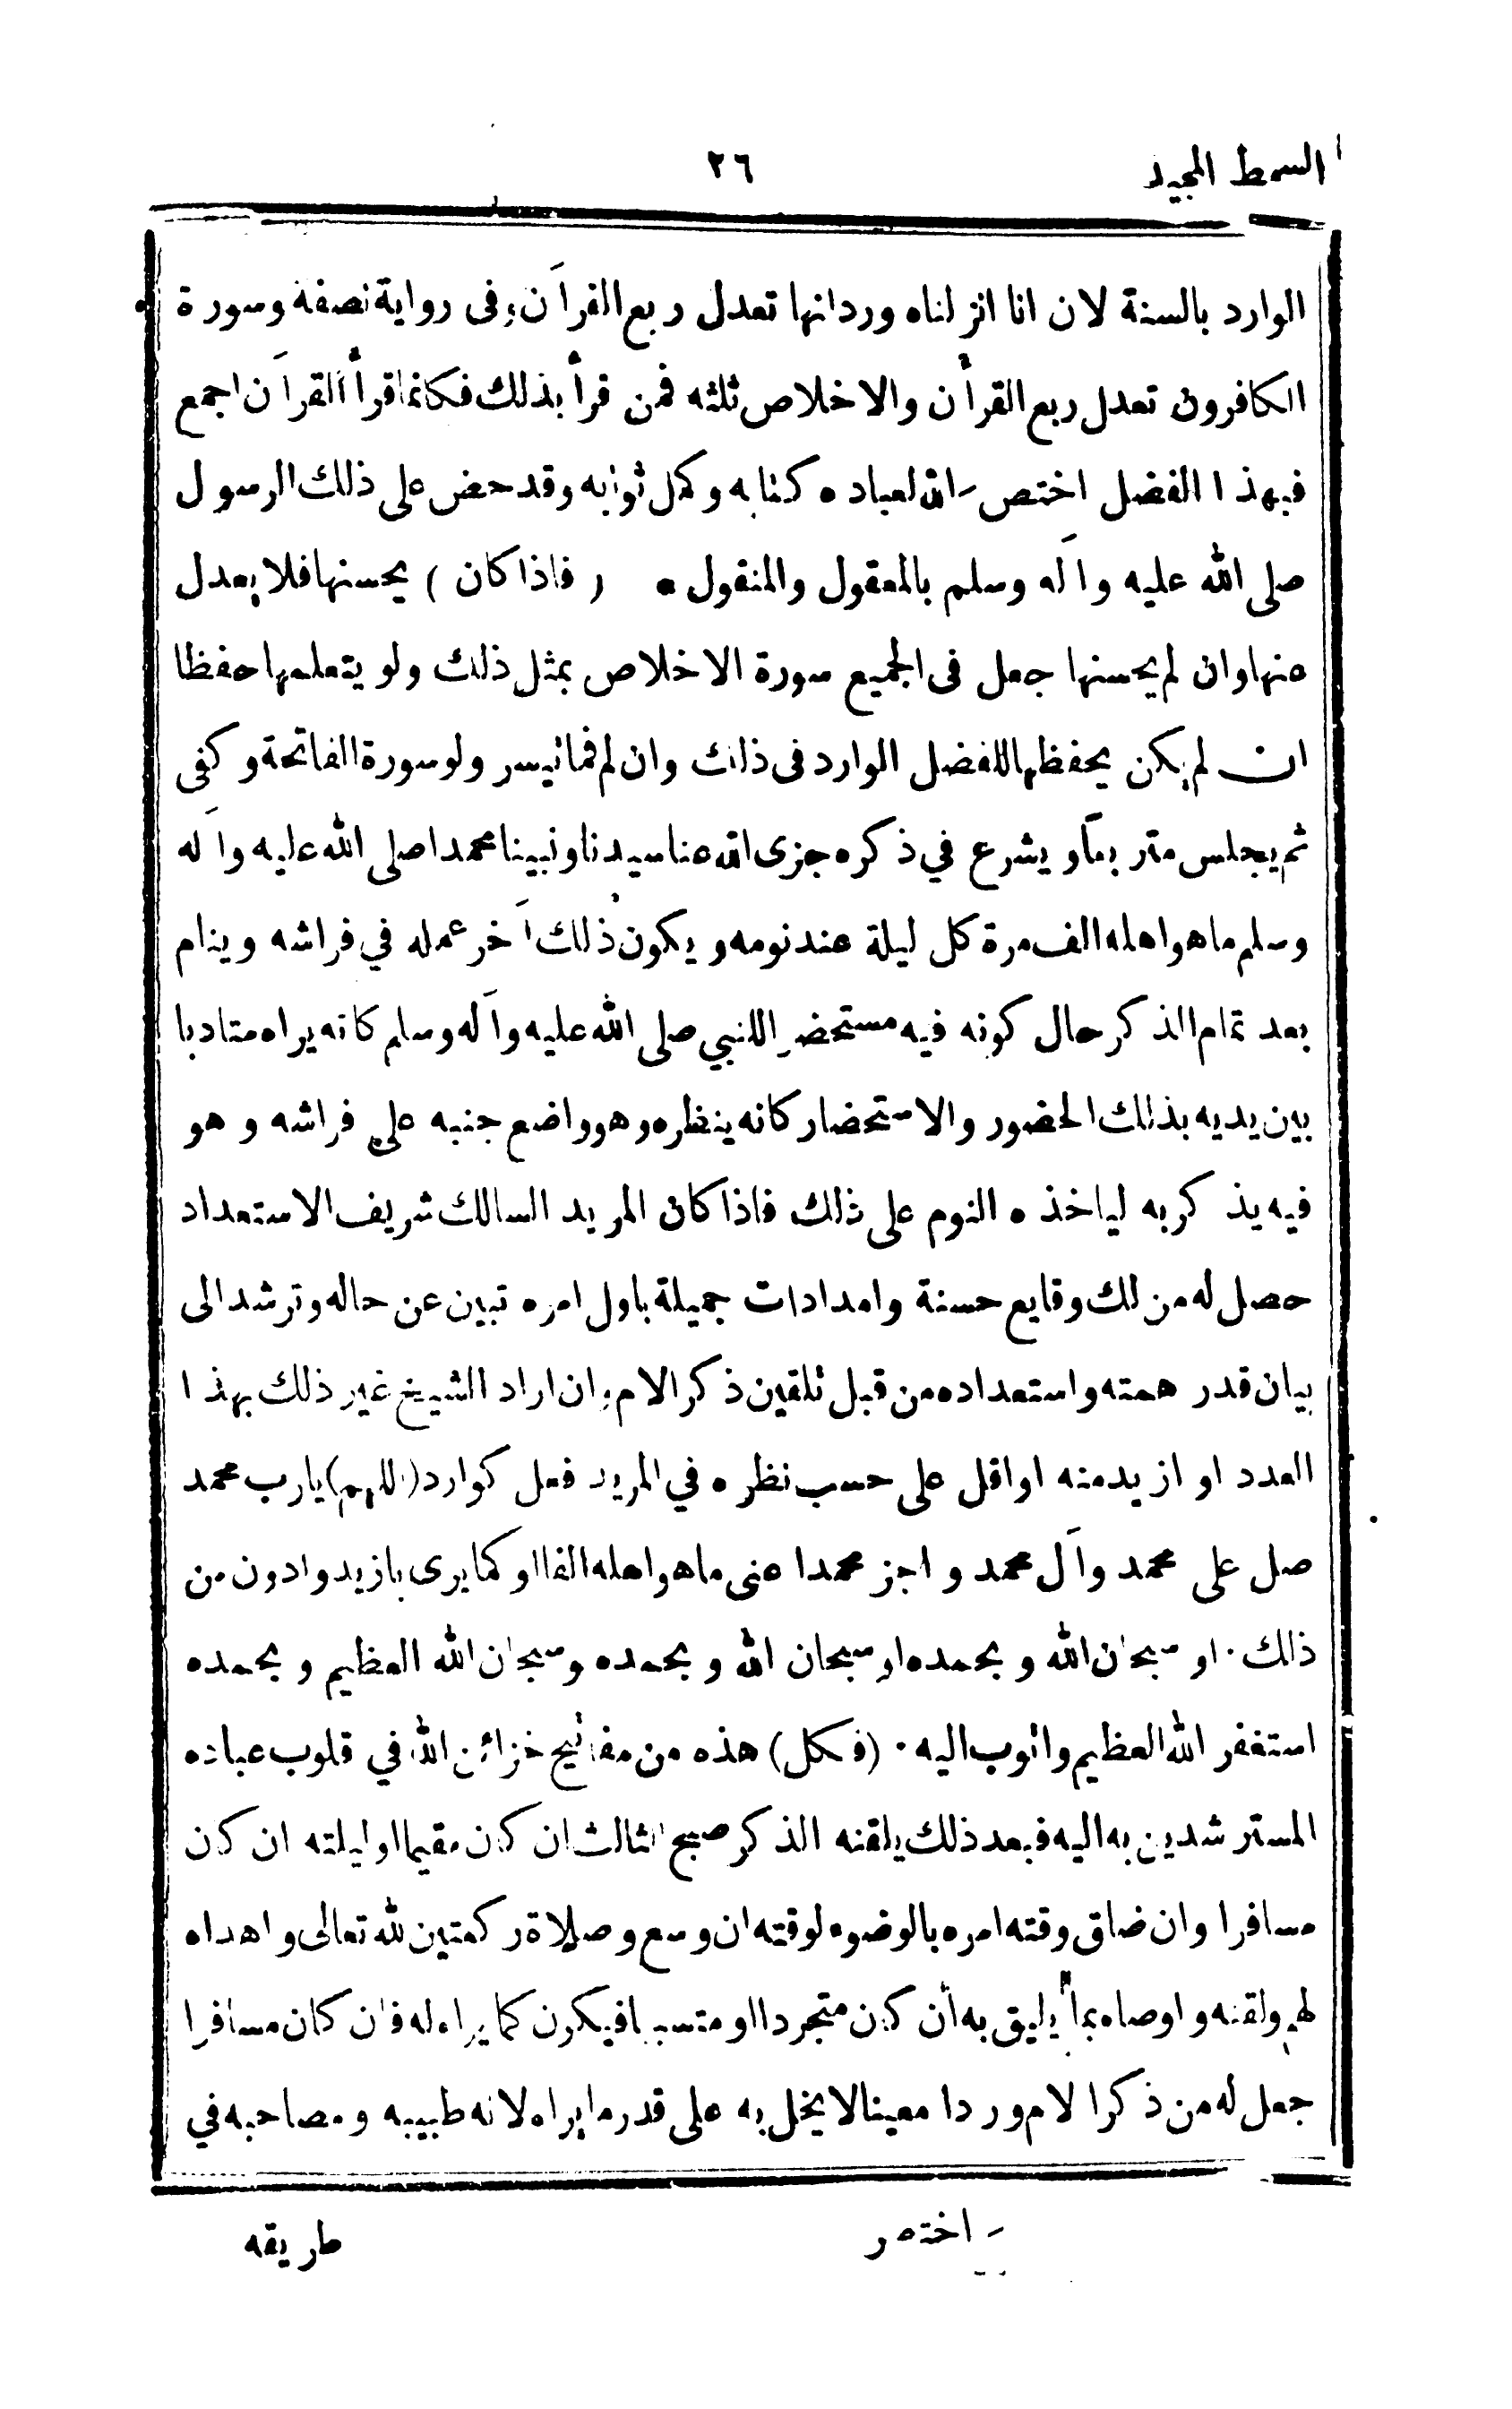 السمط المجيد
٢٦
الوارد بالسنة لان انا انزلناه ورد انها تعدل ربع القرآن وفى رواية نصفه وسورة
الكافرون تعدل ربع القرآن والاخلاص ثلثه فمن قرأ بذلك فكانما قرأ القرآن اجمع
فبهذا الفضل اختص الله لعباده كتابه وكمل ثوابه وقد حض على ذلك الرسول
صلى الله عليه وآله وسلم بالمعقول والمنقول • (فاذا كان) يحسنها فلا يعدل
عنها وان لم يحسنها جعل فى الجميع سورة الاخلاص بمثل ذلك ولو يتعلمها حفظا
ان لم يكن يحفظها للفضل الوارد فى ذلك وان لم فما تيسر ولو سورة الفاتحة وكفى
ثم يجلس متربعا ويشرع في ذكره جزى الله عنا سيدنا ونبينا محمدا صلى الله عليه وآله
وسلم ما هو اهله الف مرة كل ليلة عند نومه ويكون ذلك آخر عمله في فراشه وينام
بعد تمام الذكر حال كونه فيه مستحضر اللنبي صلى الله عليه وآله وسلم كانه يراه متادبا
بين يديه بذلك الحضور والاستحضار كانه ينظره وهو واضع جنبه على فراشه و هو
فيه يذكر به لياخذه النوم على ذلك فاذا كان المريد السالك شريف الاستعداد
حصل له من لك وقايع حسنة وامدادات جميلة باول امره تبين عن حاله وترشد الى
بيان قدر همته واستعداده من قبل تلقين ذكر الام وان اراد الشيخ غير ذلك بهذا
العدد او ازيد منه او اقل على حسب نظره في المريد فعل كوارد (اللهم) يارب محمد
صل على محمد وآل محمد و اجز محمدا عنى ما هو اهله الفا او كما يرى بازيد وادون من
ذلك • او سبحان الله و بحمده او سبحان الله و بحمده وسبحان الله العظيم و بحمده
استغفر الله العظيم واتوب اليه • (فكل) هذه من مفاتيح خزائن الله في قلوب عباده
المسترشدين به اليه فبعد ذلك يلقنه الذكر صبح الثالث ان كان مقيما او ليلته ان كان
مسافرا وان ضاق وقته امره بالوضوء لوقته ان وسع وصلاة ركعتين لله تعالى واهداه
لهم ولقنه واوصاه بما يليق به أن كان متجردا او متسببا فيكون كما يراه له فان كان مسافرا
جعل له من ذكرا لام وردا معينا لا يخل به على قدر ما يراه لانه طبيبه ومصاحبه في
طريقه